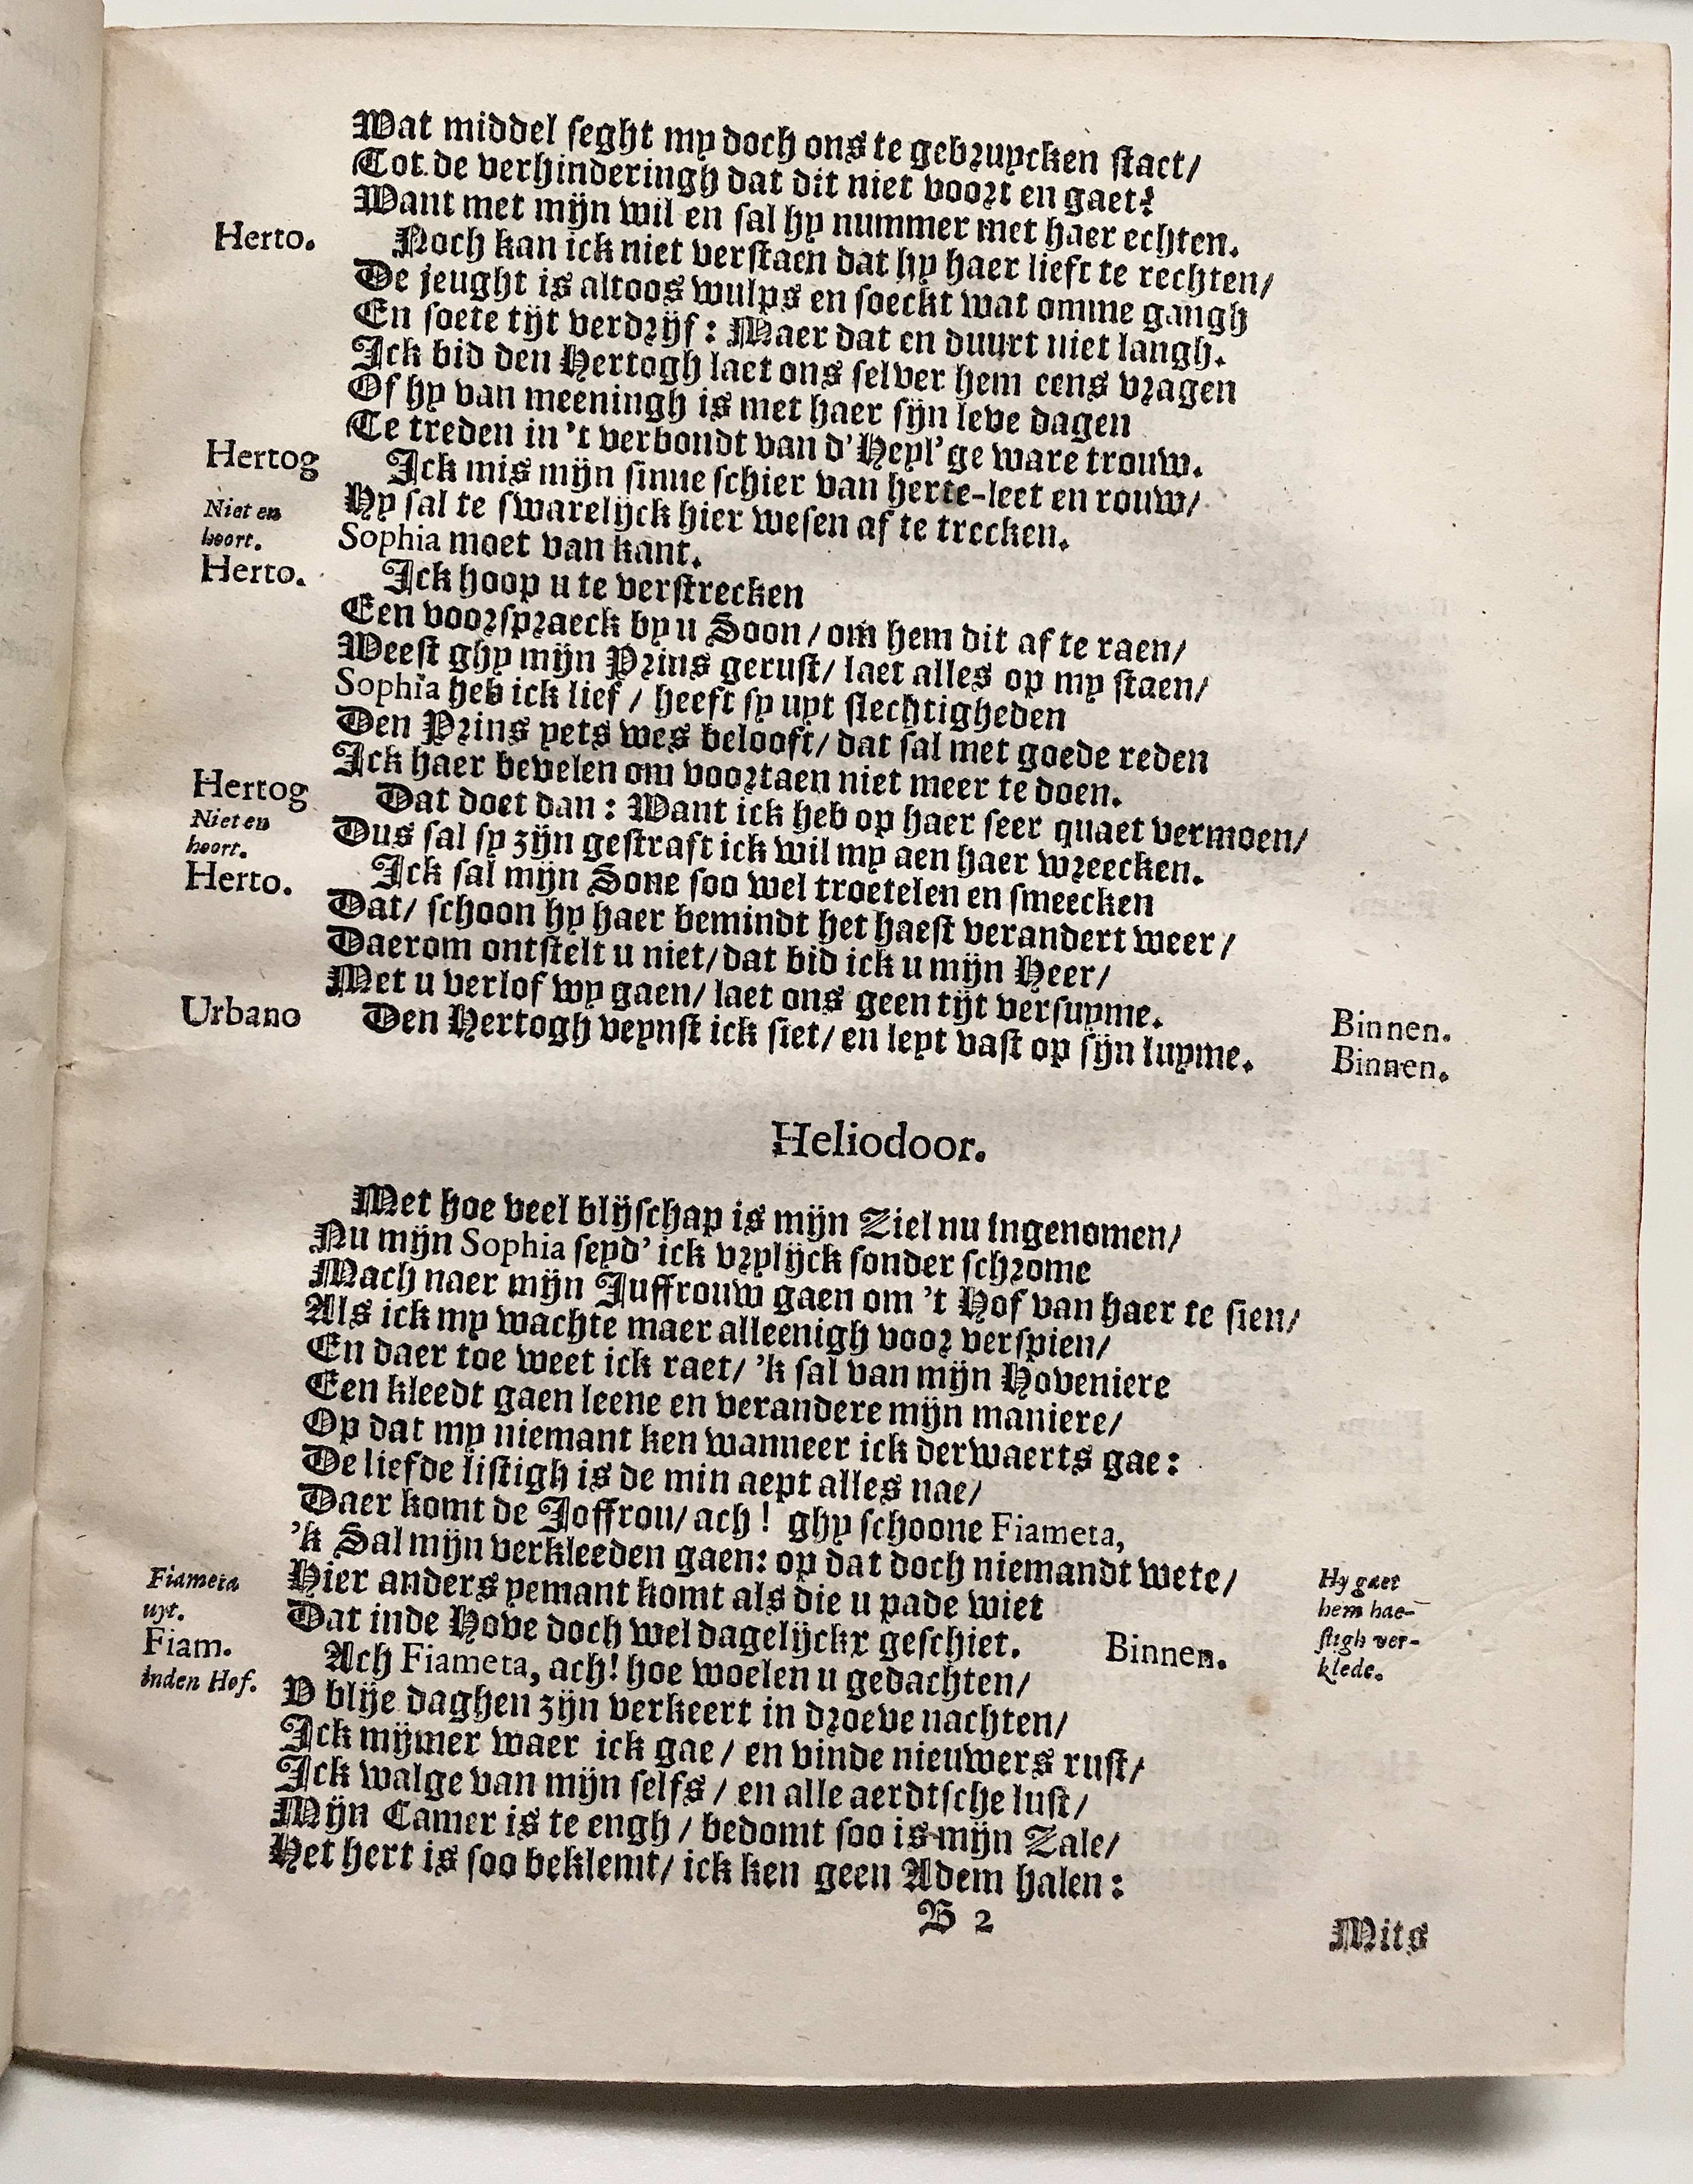 Wat middel seght my doch ons te gebruycken staet/
Tot de verhinderingh dat dit niet voort en gaet?
Want met mijn wil en sal hy nummer met haer echten.
Herto. Noch kan ick niet verstaen dat hy haer lieft te rechten/
De jeught is altoos wulps en soeckt wat omme gangh
En soete tijt verdrijf: Maer dat en duurt niet langh.
Ick bid den Hertogh laet ons selver hem eens vragen
Of hy van meeningh is met haer sijn leve dagen
Te treden in 't verbondt van d'Heyl'ge ware trouw.
Hertog Ick mis mijn sinne schier van herte-leet en rouw/
Niet en Hy sal te swarelijck hier wesen af te trecken.
hoort. Sophia moet van kant.
Herto. Ick hoop u te verstrecken
Een voorspraeck by u Soon/ om hem dit af te raen/
Weest ghy mijn Prins gerust/ laet alles op my staen/
Sophia heb ick lief/ heeft sy uyt slechtigheden
Den Prins yets wes belooft/ dat sal met goede reden
Ick haer bevelen om voortaen niet meer te doen.
Hertog Dat doet dan: Want ick heb op haer seer quaet vermoen/
Niet en hoort. Dus sal sy zijn gestraft ick wil my aen haer wreecken.
Herto. Ick sal mijn Sone soo wel troetelen en smeecken
Dat/ schoon hy haer bemindt het haest verandert weer/
Daerom ontstelt u niet/ dat bid ick u mijn Heer/
Met u verlof wy gaen/ laet ons geen tijt versuyme. Binnen.
Urbano Den Hertogh veynst ick siet/ en leyt vast op sijn luyme. Binnen.
Heliodoor.
Met hoe veel blijschap is mijn Ziel nu ingenomen/
Nu mijn Sophia seyd' ick vrylijck sonder schrome
Mach naer mijn Juffrouw gaen om 't Hof van haer te sien/
Als ick my wachte maer alleenigh voor verspien/
En daer toe weet ick raet/ 'k sal van mijn Hoveniere
Een kleedt gaen leene en verandere mijn maniere/
Op dat my niemant ken wanneer ick derwaerts gae:
De liefde listigh is de min aept alles nae/
Daer komt de Joffrou/ ach! ghy schoone Fiameta,
'k Sal mijn verkleeden gaen: op dat doch niemandt wete/
Fiameta Hier anders yemant komt als die u pade wiet Hy gaet
uyt. Dat inde Hove doch wel dagelijckx geschiet. Binnen. hem hae-
stigh ver-
klede.
Fiam. Ach Fiameta, ach! hoe woelen u gedachten/
inden Hof. V blije daghen zijn verkeert in droeve nachten/
Ick mijmer waer ick gae/ en vinde nieuwers rust/
Ick walge van mijn selfs/ en alle aerdtsche lust/
Mijn Camer is te engh/ bedomt soo is mijn Zale/
Het hert is soo beklemt/ ick ken geen Adem halen:
B 2
Mits